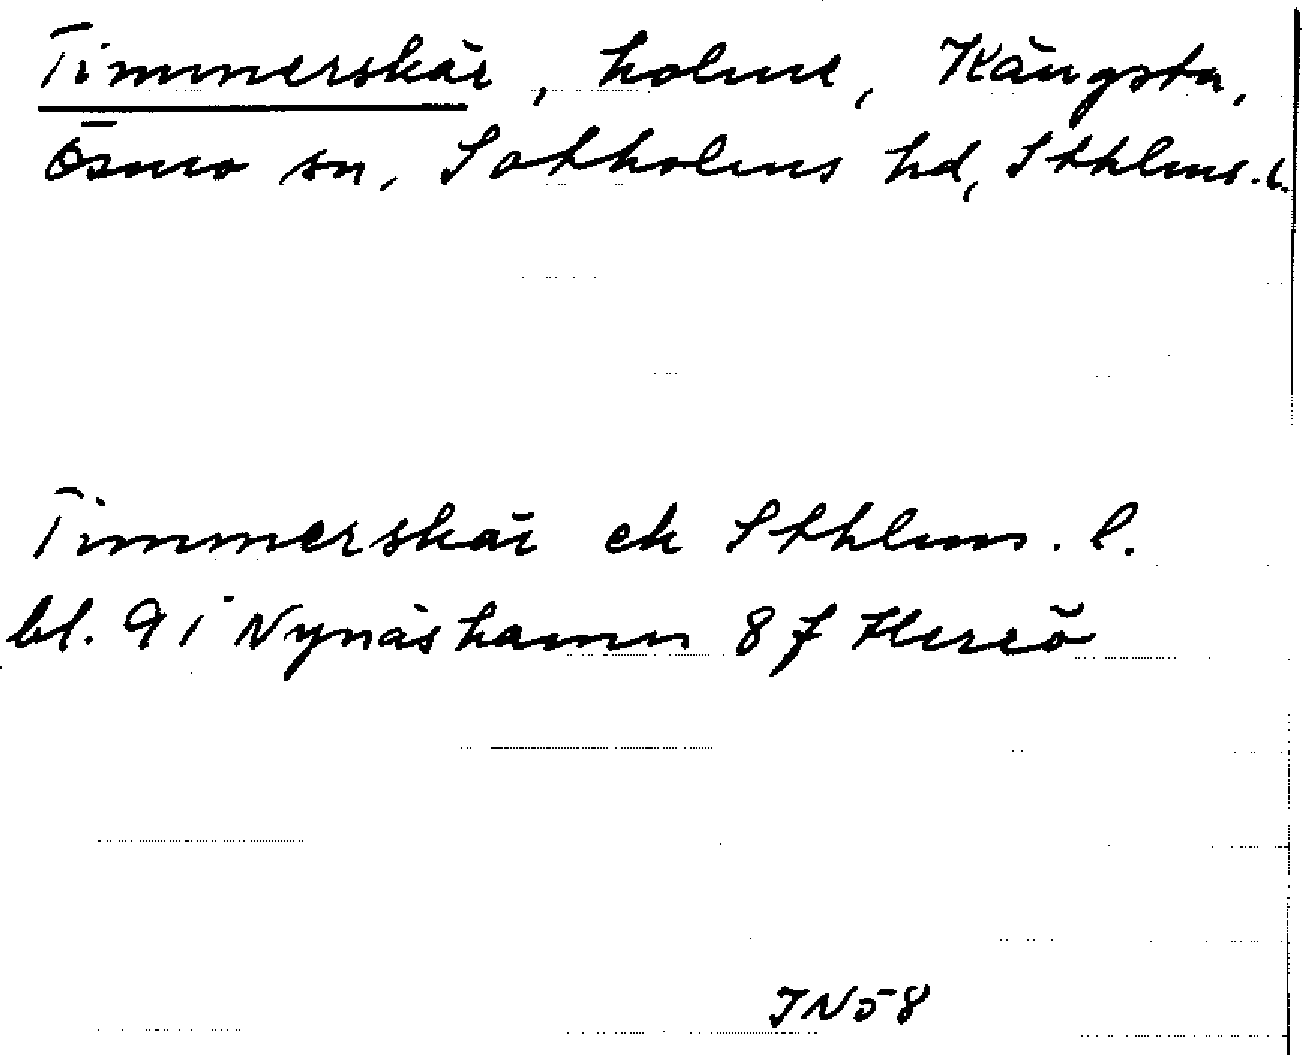 Timmerskär, holme, Kängsta,
Ösmo sn, Sotholms hd, Sthlms. l.
Timmerskär ek Sthlms. l.
bl. 91 Nynäshamn 8f Herrö
JN58